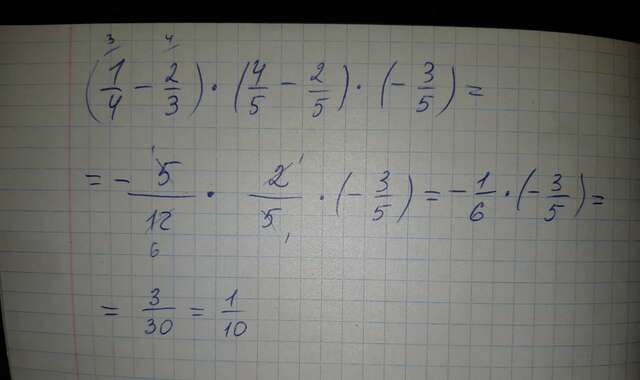 (1/4 - 2/3) · (4/5 - 2/5) · (- 3/5) =
= - 5/12 · 2/5 · (- 3/5) = - 1/6 · (- 3/5) =
= 3/30 = 1/10